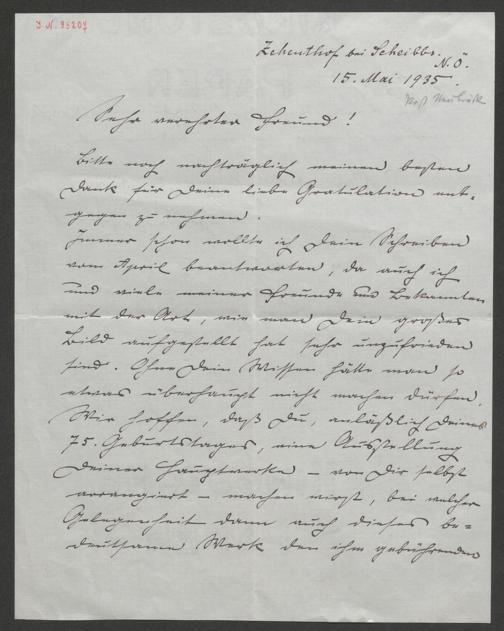 J.N. 95207
Zehenthof bei Scheibbs.
N.Ö.
15. Mai 1935.
Post Neubruck
Sehr verehrter Freund!
Bitte noch nachträglich meinen besten
Dank für Deine liebe Gratulation ent-
gegen zu nehmen.
Immer schon wollte ich Dein Schreiben
vom April beantworten, da auch ich
und viele meiner Freunde und Bekannten
mit der Art, wie man Dein großes
Bild aufgestellt hat sehr unzufrieden
sind. Ohne Dein Wissen hätte man so
etwas überhaupt nicht machen dürfen.
Wir hoffen, daß Du, anläßlich Deines
75. Geburtstages, eine Ausstellung
Deiner Hauptwerke – von Dir selbst
arrangiert – machen wirst, bei welcher
Gelegenheit dann auch dieses be-
deutsame Werk den ihm gebührenden